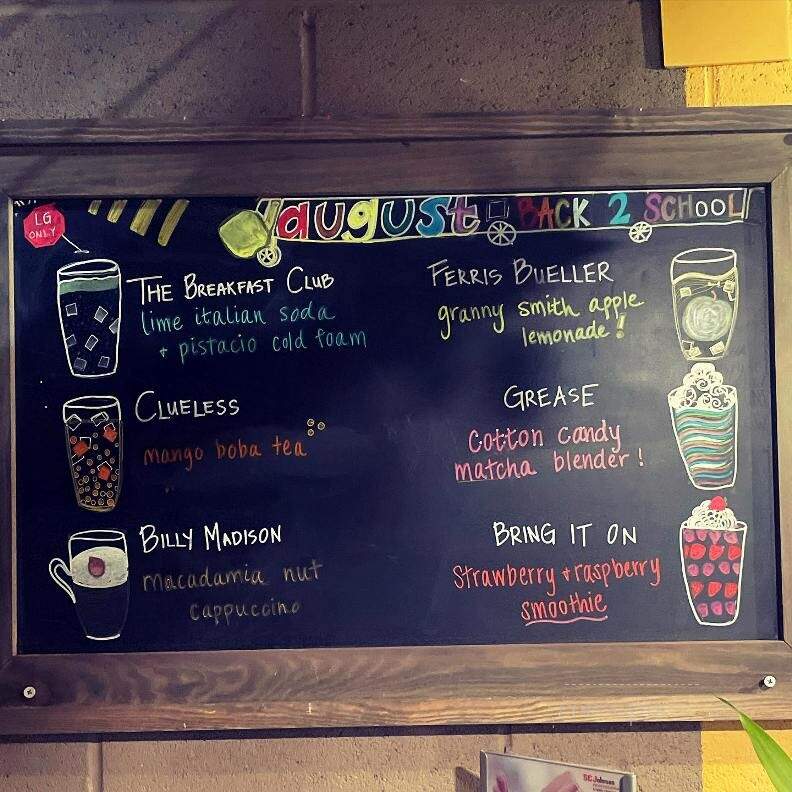 LG
ONLY
august BACK 2 SCHOOL
THE BREAKFAST CLUB
lime italian soda
+ pistacio cold foam
CLUELESS
mango boba tea
BILLY MADISON
macadamia nut
cappuccino
FERRIS BUELLER
granny smith apple
lemonade!
GREASE
cotton candy
matcha blender!
BRING IT ON
strawberry + raspberry
smoothie
SC Johnson